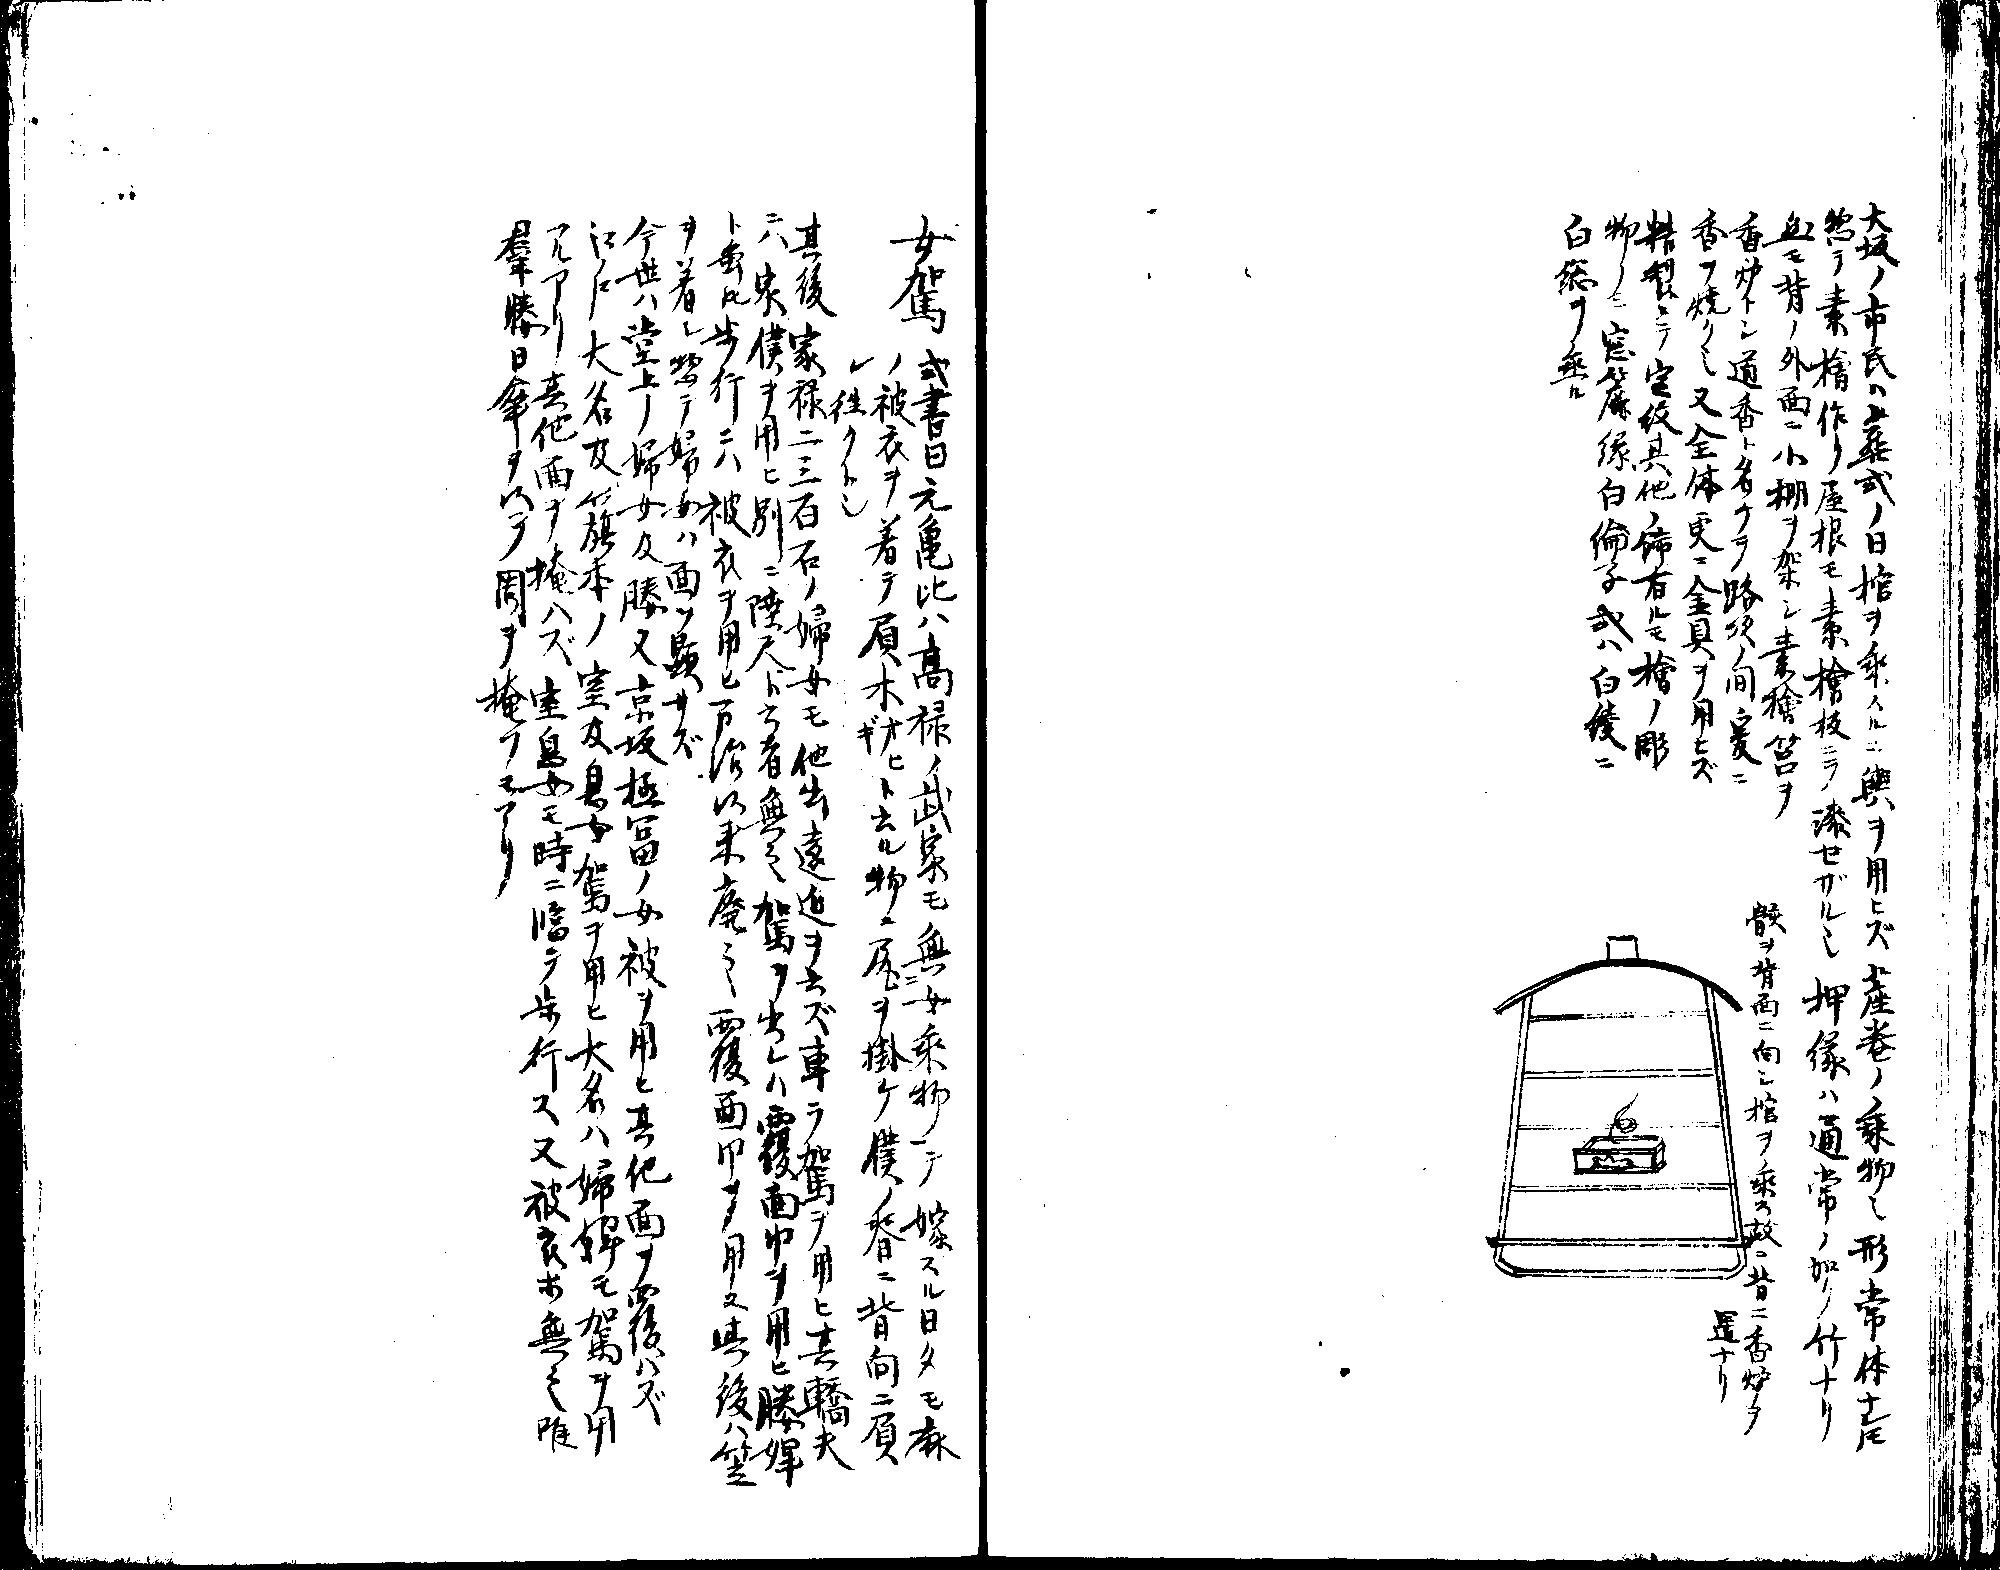 大坂ノ市民ハ葬式ノ日棺ヲ乗スルニ輿ヲ用ヒズ蓙巻ノ乗物也形常体ナレ𪜈
惣テ素檜作リ屋根モ素檜板ニテ漆セザル也押縁ハ通常ノ如ク竹ナリ
且モ背ノ外面ニ小棚ヲ架シ素檜筥ヲ
香炉トシ道香ト名ケテ路次ノ間爰ニ
香ヲ焼ク也又全体更ニ金具ヲ用ヒズ
精製ニテ定紋其他ノ飾有ルモ檜ノ彫
物ノミ窓簾縁白倫子或ハ白綾ニ
白総ヲ垂ル
骸ヲ背面ニ向シ棺ヲ乗ス故ニ背ニ香炉ヲ
置ナリ
女駕 或書曰元亀比ハ高禄ノ武家モ無女乗物ニテ嫁スル日タモ麻
ノ被衣ヲ着テ肩木オヒギト云ル物ニ尻ヲ掛ケ僕ノ脊ニ背向ニ肩
レ往クトシ
其後家禄二三百石ノ婦女モ他出遠近ヲ云ズ車ラ駕ヲ用ヒ其轎夫
ニハ家僕ヲ用ヒ別ニ陸尺ト云者無之駕ヲ出レハ覆面巾ヲ用ヒ媵婢
ト雖𪜈歩行ニハ被衣ヲ用ヒ万治以来廃之覆面巾ヲ用又其後ハ笠
ヲ着シ惣テ婦女ハ面ヲ顕サズ
今世ハ堂上ノ婦女及媵又京坂極冨ノ女被ヲ用ヒ其他面ヲ覆ハズ
江戸大名及籏本ノ室及息女駕ヲ用ヒ大名ハ婦婢モ駕ヲ用
フルアリ其他面ヲ掩ハズ室息女モ時ニ臨テ歩行ス又被衣ホ無之唯
羣媵日傘ヲ以テ周ヲ掩フモアリ